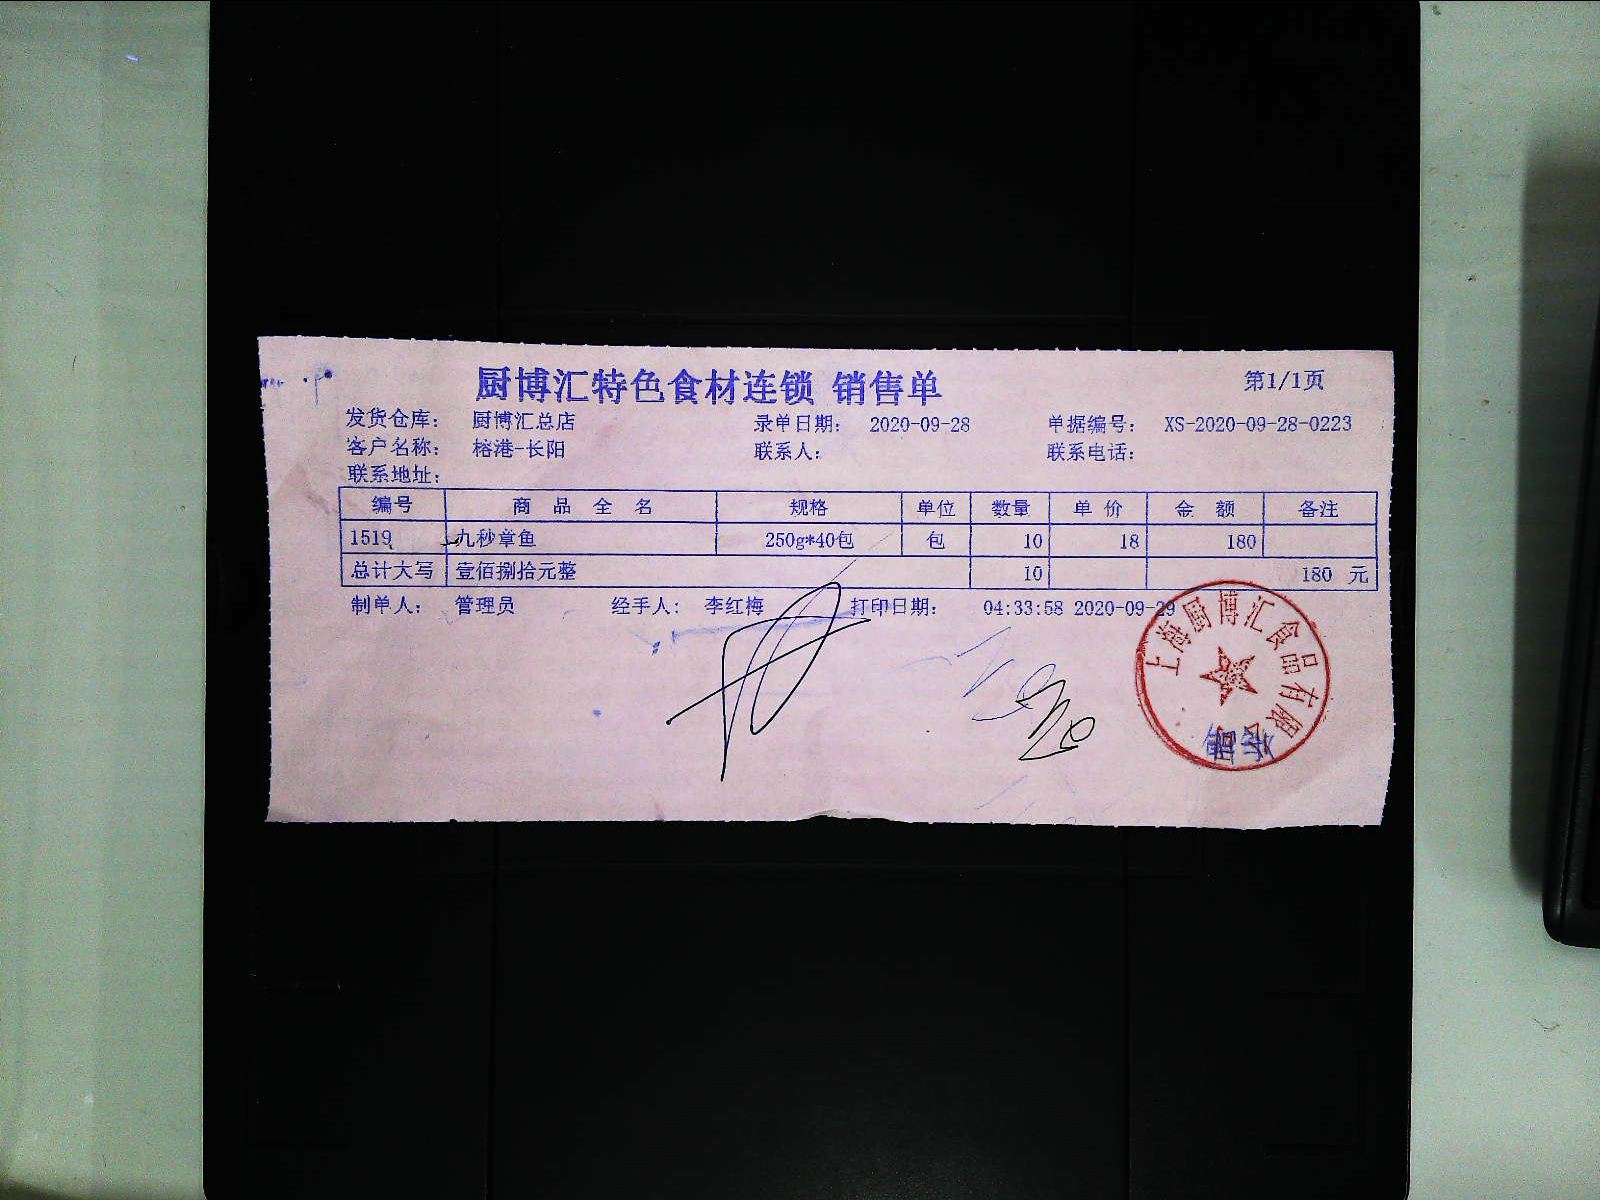 厨博汇特色食材连锁 销售单 第1/1页
发货仓库： 厨博汇总店 录单日期： 2020-09-28 单据编号： XS-2020-09-28-0223
客户名称： 榕港-长阳 联系人： 联系电话：
联系地址：
编号 商品全名 规格 单位 数量 单价 金额 备注
1519 九秒章鱼 250g*40包 包 10 18 180
总计大写 壹佰捌拾元整 10 180 元
制单人： 管理员 经手人： 李红梅 打印日期： 04:33:58 2020-09-29
上海厨博汇食品有限公司